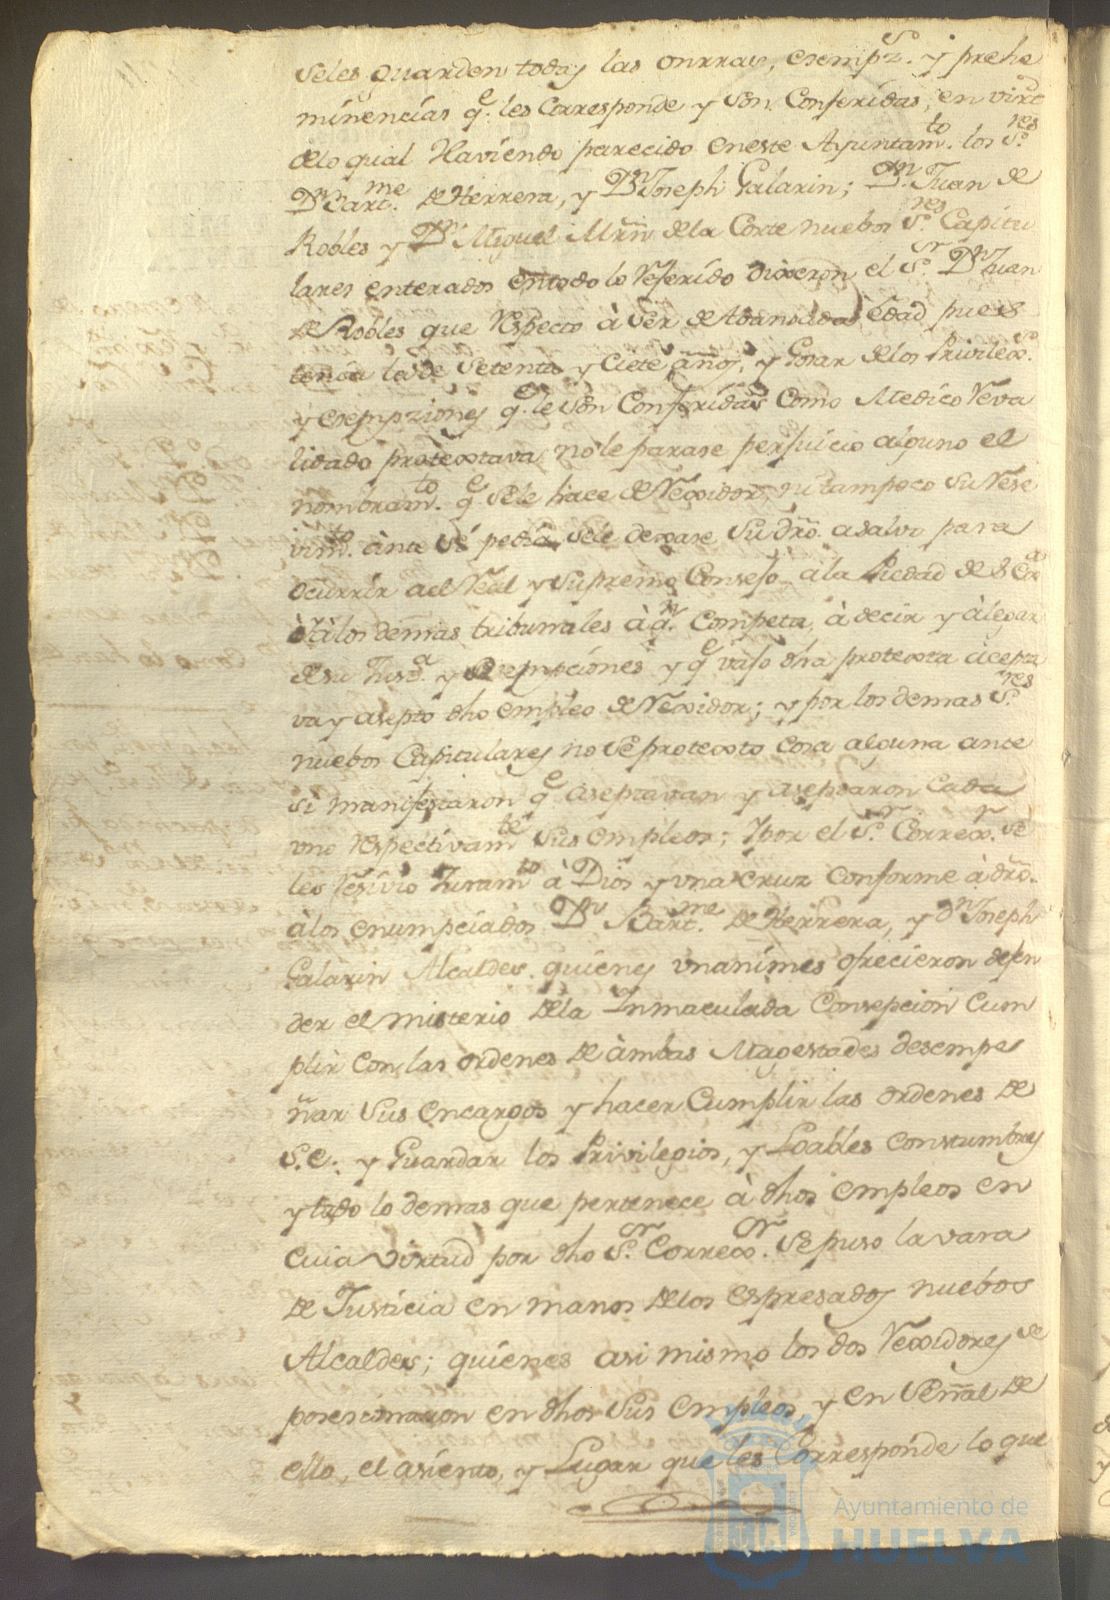 seles guarden todas las onrras, exempz.s y prehe
minencias q.e les Corresponde y son Conferidas, en virt
delo qual Haviendo parecido eneste Ayuntam.to los S.res
D.n Bart.me de Herrera, y D.n Joseph Galarin; D.n Juan de
Robles y D.n Miguel Mrñ dela Corte nuebos S.res Capitu
lares enterados entodo lo Referido dixeron el S.r D.n Juan
de Robles que Respecto à Ser de Abansada edad pues
tenia la de Setenta y Ciete años, y Gosar delos Privilex.s
y exempziones q.e le Son Conferidas Como Medico Reva
lidado protextava nole parase perjuicio alguno el
nombram.to q.e sele hace de Rexidor, ni tampoco su Rese
vim.to ànte si pedia sele dexase su dro. a salvo para
Ocurrir ael Real y Supremo Consejo à la Piedad de S. Ex.a
ò à los demas tribunales à q.n Competa, à decir y àlegar
desu Just.a y exempciones y q.e vajo dha protexta acepta
va y asepto dho empleo de Rexidor; y por los demas S.res
nuebos Capitulares no se protexto cosa alguna ante
si manifestaron q.e aseptavan y aseptaron Cada
uno respectivam.te sus empleos; Y por el S.r Correx.r se
les Resivio Juram.to à Dios y una Cruz conforme à dro.
à los enumpciados D.n Bart.me de Herrera, y D.n Joseph
Galarin Alcaldes quienes unanimes ofrecieron defen
der el misterio dela Inmaculada Consepcion Cum
plir con las ordenes de àmbas Magestades desempe
ñar sus encargos y hacer Cumplir las ordenes de
S.E. y Guardar los Privilegios, y Loables constumbres
y todo lo demas que pertenece à dhos empleos en
Cuia virtud por dho S.or Correx.or Se puso la vara
de Justicia en manos delos espresados nuebos
Alcaldes; quienes asi mismo los dos Rexidores se
posesionaron en dhos sus empleos, y en Señal de
ello, el asiento, y Lugar que les Corresponde lo que
Ayuntamiento de
HUELVA